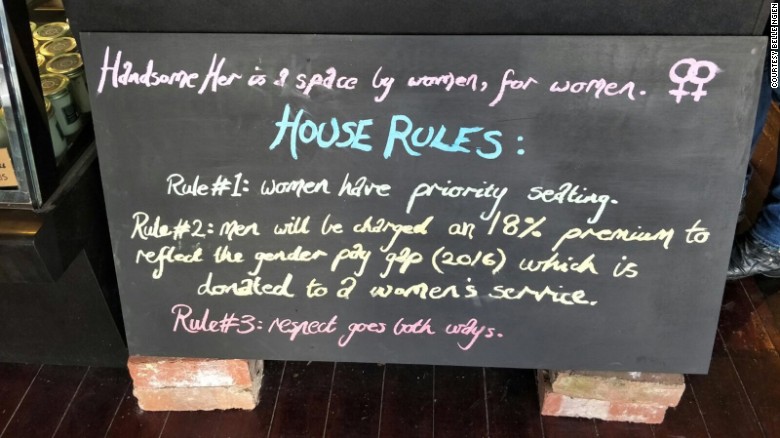 Handsome Her is a space by women, for women. ⚢
HOUSE RULES:
Rule#1: women have priority seating.
Rule#2: men will be charged an 18% premium to
reflect the gender pay gap (2016) which is
donated to a women's service.
Rule#3: respect goes both ways.
COURTESY BELLE NGIEN